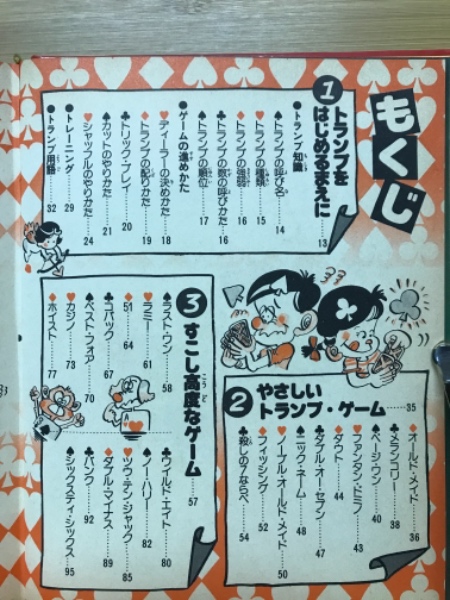 もくじ
1 トランプを
はじめるまえに……13
●トランプ知識
♠トランプの呼び名……14
♥トランプの種類……15
♦トランプの強弱……16
♣トランプの数の呼びかた……16
♠トランプの順位……17
●ゲームの進めかた
♥ディーラーの決めかた……18
♦トランプの配りかた……19
♣トリック・プレイ……20
♠カットのやりかた……21
♥シャッフルのやりかた……24
●トレーニング……29
●トランプ用語……32
2 やさしい
トランプ・ゲーム……35
♦オールド・メイド……36
♣メランコリー……38
♠ページ・ワン……40
♥ファンタン・ドミノ……43
♦ダウト……44
♣ダブル・オー・セブン……47
♠ニック・ネーム……48
♥ノーブル・オールド・メイド……50
♦フィッシング……52
♣殺しの7ならべ……54
3 すこし高度なゲーム……57
♠ラスト・ワン……58
♥ラミー……61
♦51……64
♣コパック……67
♠ベスト・フォア……70
♥カジノ……73
♦ホイスト……77
♣ワイルド・エイト……80
♠ノー・ハリー……82
♥ツウ・テン・ジャック……85
♦ダブル・マイナス……89
♣バンク……92
♠シックスティ・シックス……95